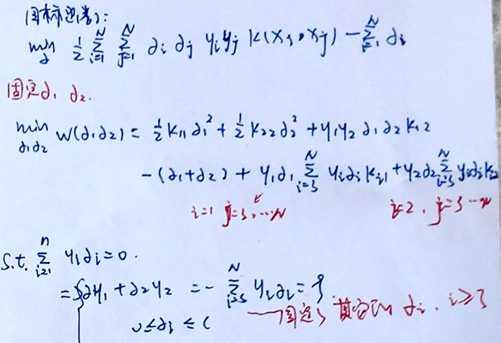 目标函数:
min α 1/2 Σ_{i=1}^{N} Σ_{j=1}^{N} αi αj yi yj K(xi, xj) - Σ_{i=1}^{N} αi
固定α1 α2.
min α1α2 W(α1α2) = 1/2 K11 α1² + 1/2 K22 α2² + y1y2 α1 α2 K12
- (α1+α2) + y1α1 Σ_{i=3}^{N} yiαi Ki1 + y2α2 Σ_{i=3}^{N} yiαi Ki2
i=1 j=3,…N i=2, j=3…N
s.t. Σ_{i=1}^{n} yiαi=0.
=> α1y1 + α2y2 = - Σ_{i=3}^{N} yiαi = ς
0≤αi≤C 固定了其余的αi, i≥3